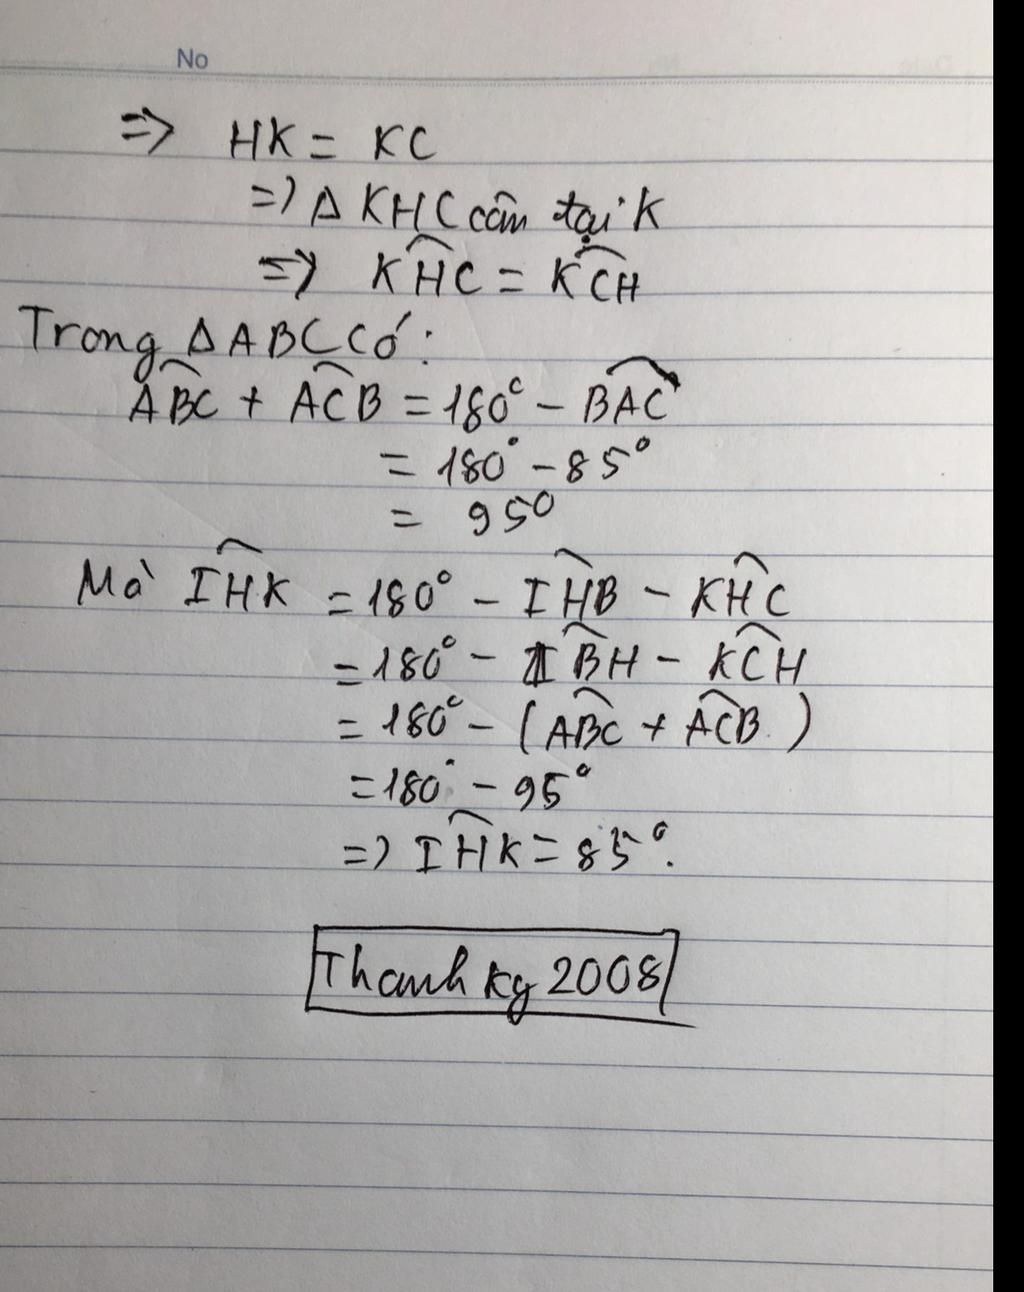 No
=> HK = KC
=> Δ KHC cân tại K
=> K̂HC = K̂CH
Trong Δ ABC có:
ÂBC + ÂCB = 180° - B̂AC
= 180° - 85°
= 95°
Mà ÎHK = 180° - ÎHB - K̂HC
= 180° - ÎBH - K̂CH
= 180° - (ÂBC + ÂCB)
= 180° - 95°
=> ÎHK = 85°.
Thanh Ky 2008